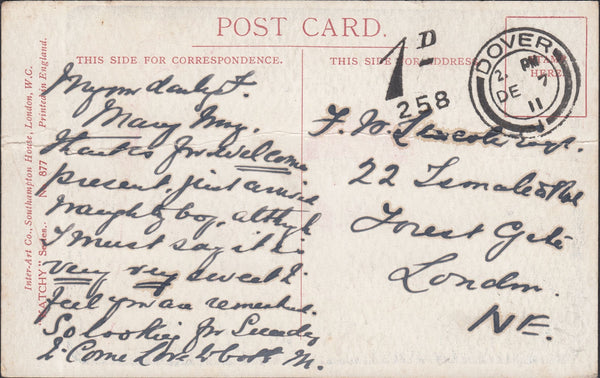 POST CARD.
THIS SIDE FOR CORRESPONDENCE.
THIS SIDE FOR ADDRESS.
HERE.
Inter-Art Co., Southampton House, London, W.C.
"WATCHY" Series. No. 877 Printed in England.
1D
258
DOVER
2. PM
DE 7
11
My own F.
Many Many
thanks for welcome
present, just arrived
naughty boy, although
I must say it is
very very sweet to
feel you are remembered.
So looking for Sunday
to Come Love to both M.
F. W. Lincoln Esqr.
22
Forest Gate
London.
NE.